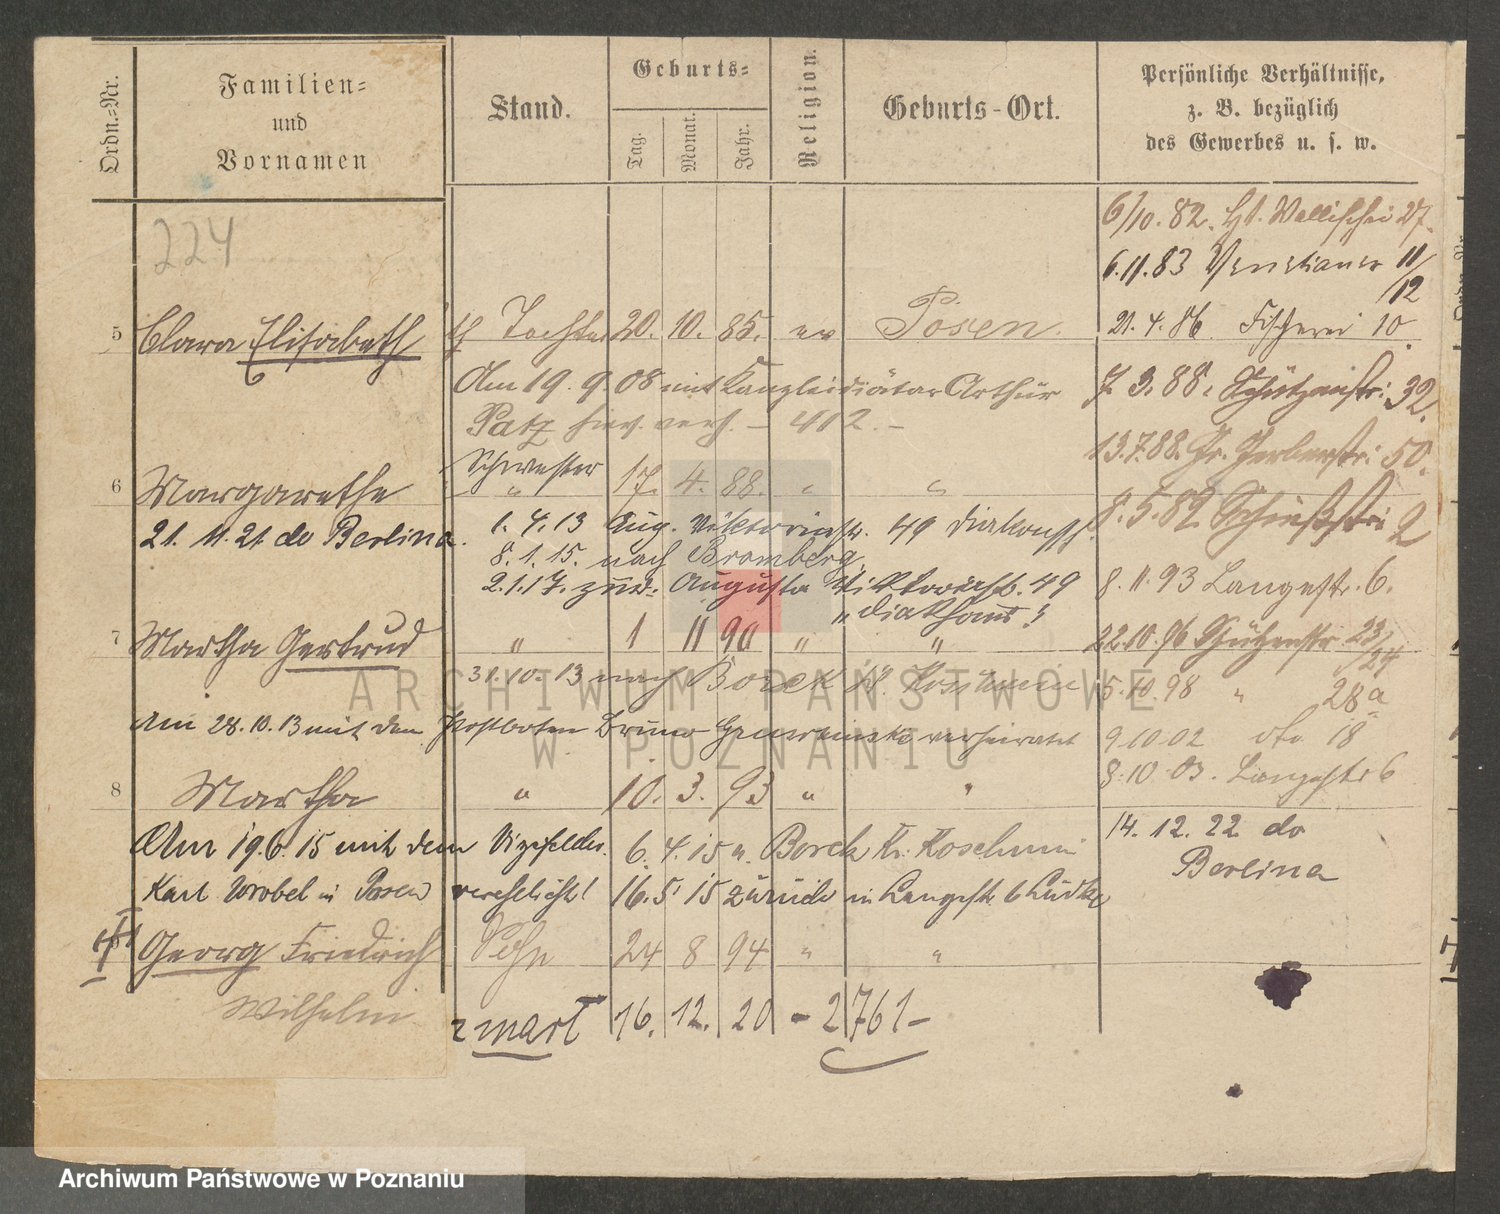 Ordn.-Nr.
Familien-
und
Vornamen
Stand.
Geburts-
Tag.
Monat.
Jahr.
Religion.
Geburts-Ort.
Persönliche Verhältnisse,
z. B. bezüglich
des Gewerbes u. s. w.
224
6/10. 82. Wallischei 27.
6.11.83 Venetianer 11/12
21. 4. 86. Fischerei 10.
5 Clara Elisabeth Tochter 20. 10. 85. ev Posen.
Am 19. 9. 08 mit Kanzleidiätar Arthur
Patz hier verh. – 412. –
7. 3. 88. Schützenstr. 32.
13.7.88. Gr. Gerberstr. 50.
Schwester
6 Margarethe " 17. 4. 88. " "
8. 5. 89. Schießstr. 2
21. 11. 21. do Berlina.
1. 4. 13 Aug. Viktoriastr. 49
8. 1. 15. nach Bromberg.
2.1.17. zur. Augusta Viktoriastr. 49
" Diakhaus
8. 11. 93 Langestr. 6.
7 Martha Gertrud " 1 11 90 " "
22.10.96 Schützenstr. 23/24
31. 10. 13 nach Borek Kr. Koschmin
5. 10. 98 " 28a
Am 28. 10. 13 mit dem Postboten Bruno verheiratet
9.10.02 18
8. 10. 03. Langestr 6
8 Martha " 10. 3. 93 " "
Am 19. 6. 15 mit dem Vizefeldw. 6. 4. 15 n. Borek Kr. Koschmin
14. 12. 22 do
Berlina
Karl Wrobel in Posen verehelicht! 16. 5. 15 zurück in Langestr. 6 Lüdke
Georg Friedrich Sohn 24 8 94 " "
Wilhelm
zmarł 16. 12. 20 - 2761 -
ARCHIWUM PAŃSTWOWE
W POZNANIU
Archiwum Państwowe w Poznaniu